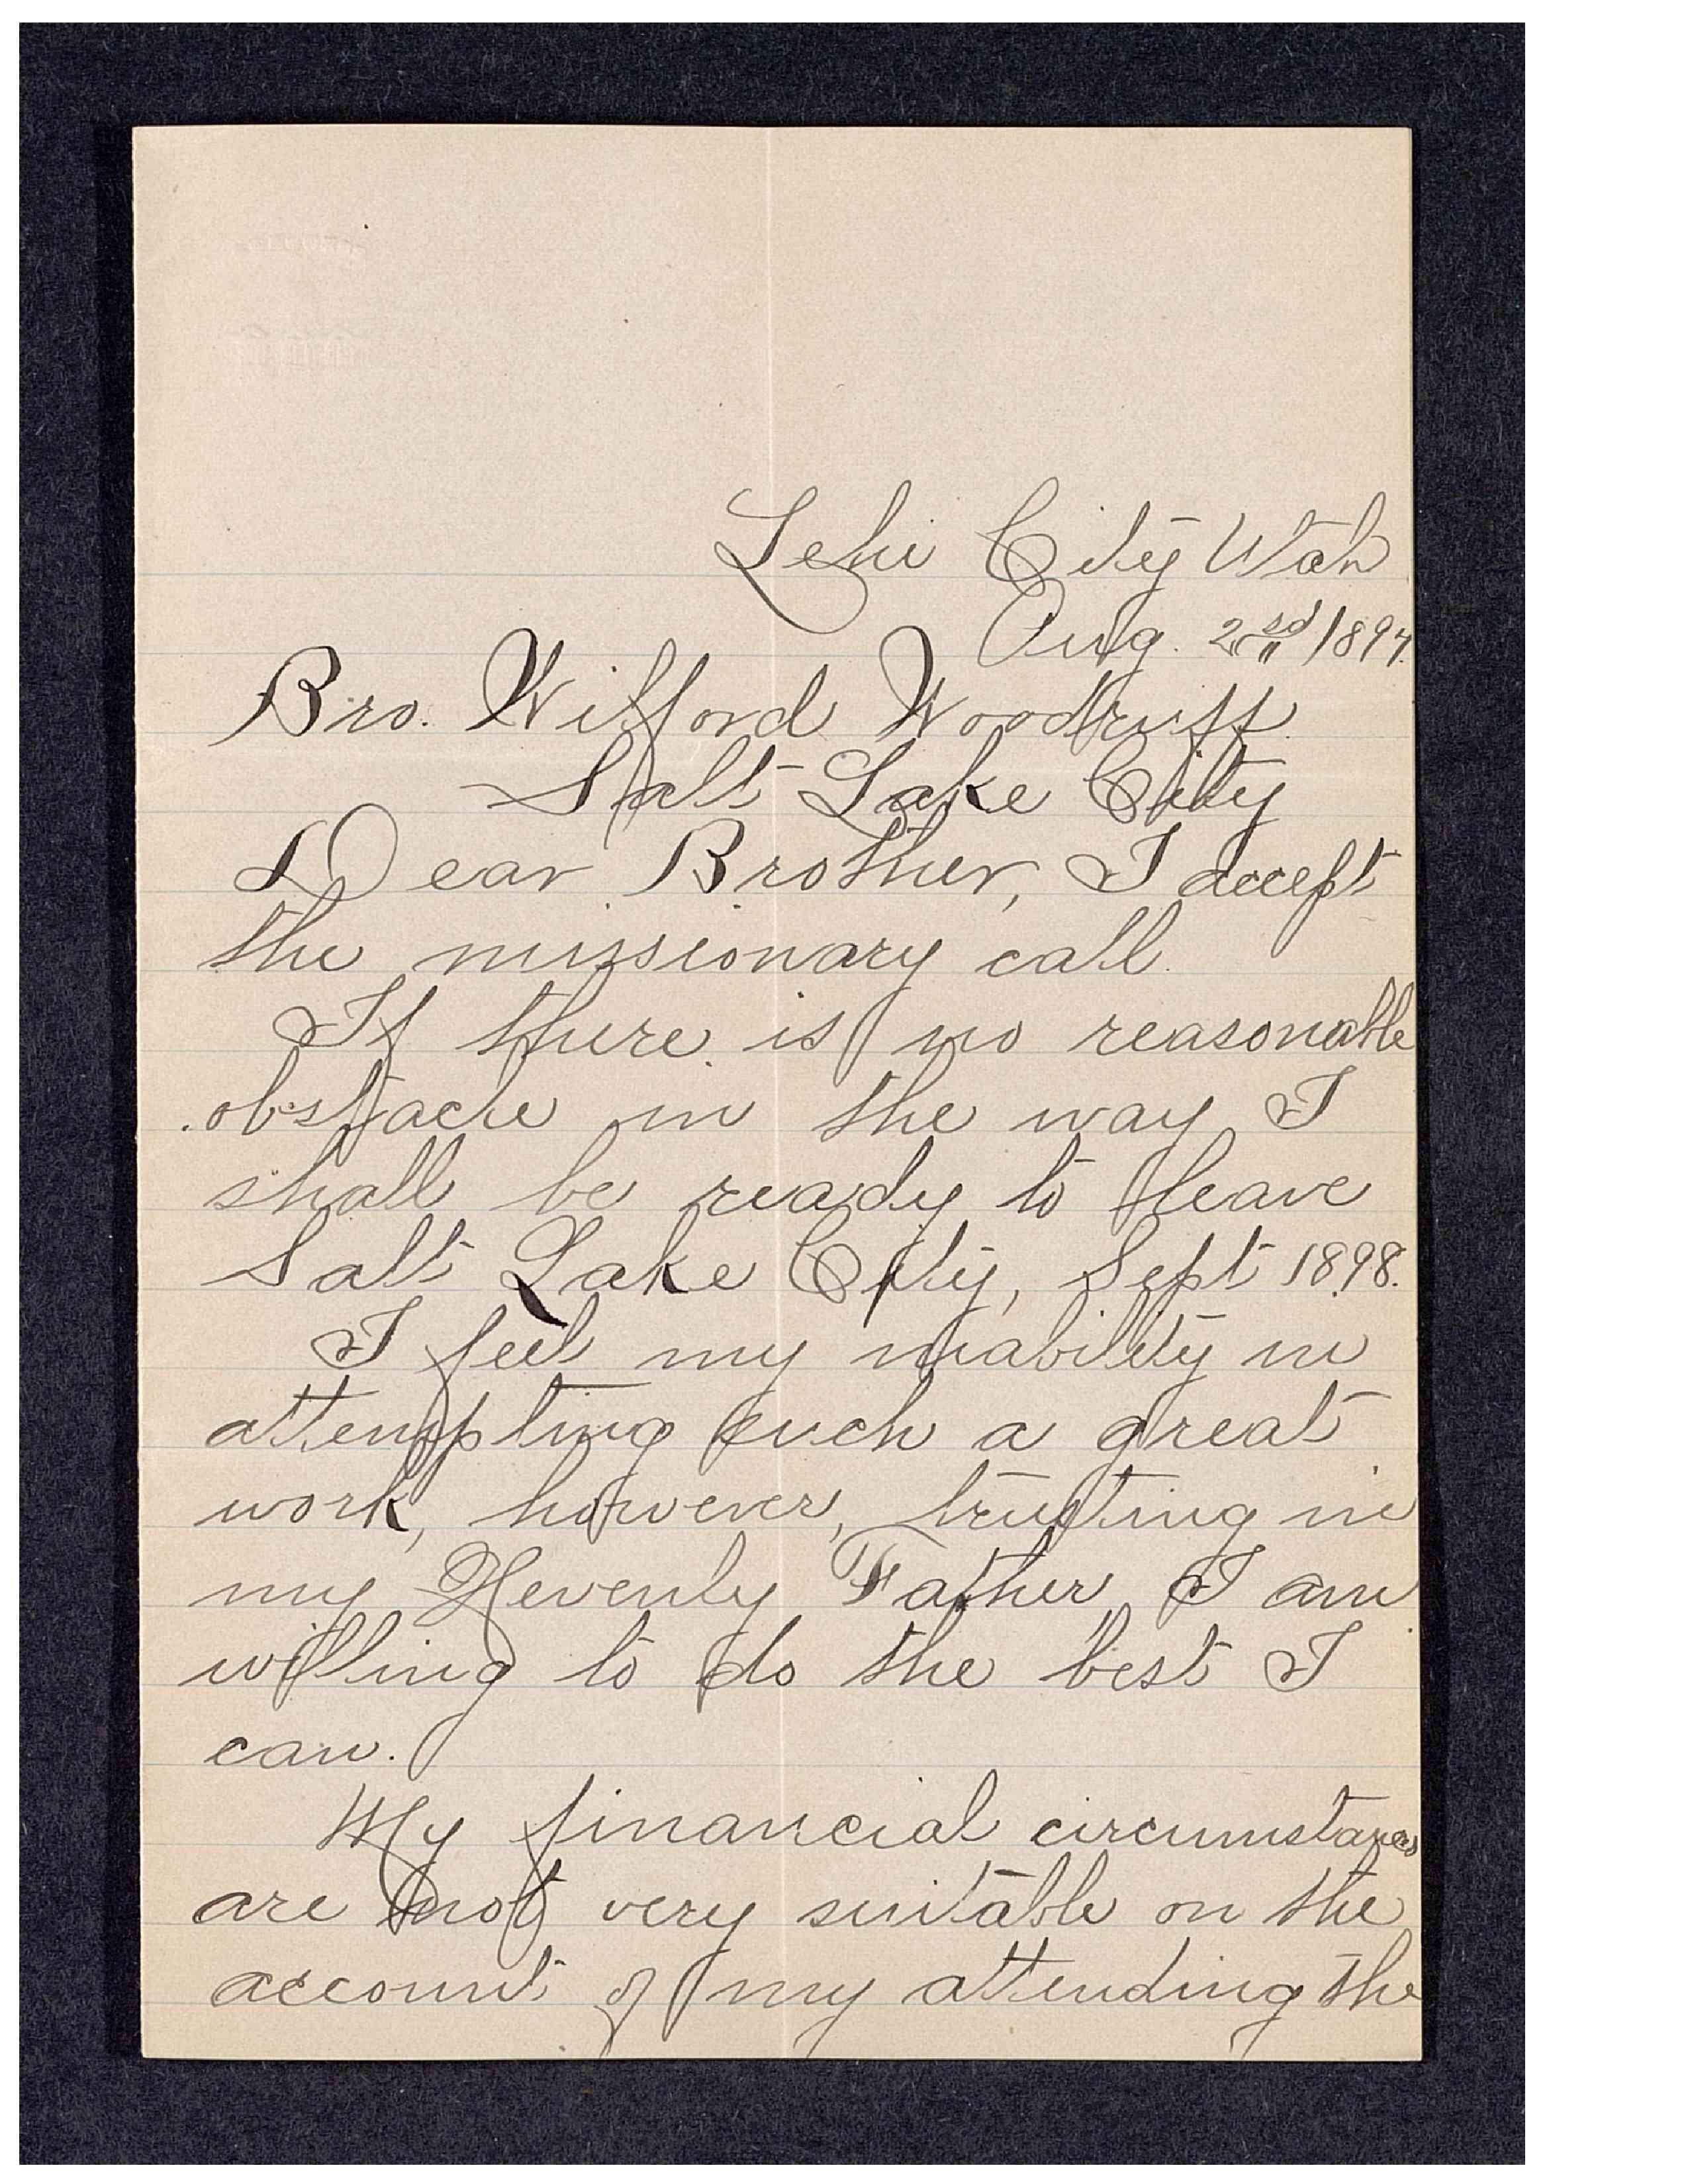 Lehi City Utah
Aug. 2nd 1897.
Bro. Wilford Woodruff.
Salt Lake City
Dear Brother, I accept
the missionary call.
If there is no reasonable
obstacle in the way I
shall be ready to leave
Salt Lake City, Sept 1898.
I feel my inability in
attempting such a great
work, however, trusting in
my Hevenly Father, I am
willing to do the best I
can.
My financial circumstances
are not very suitable on the
account of my attending the